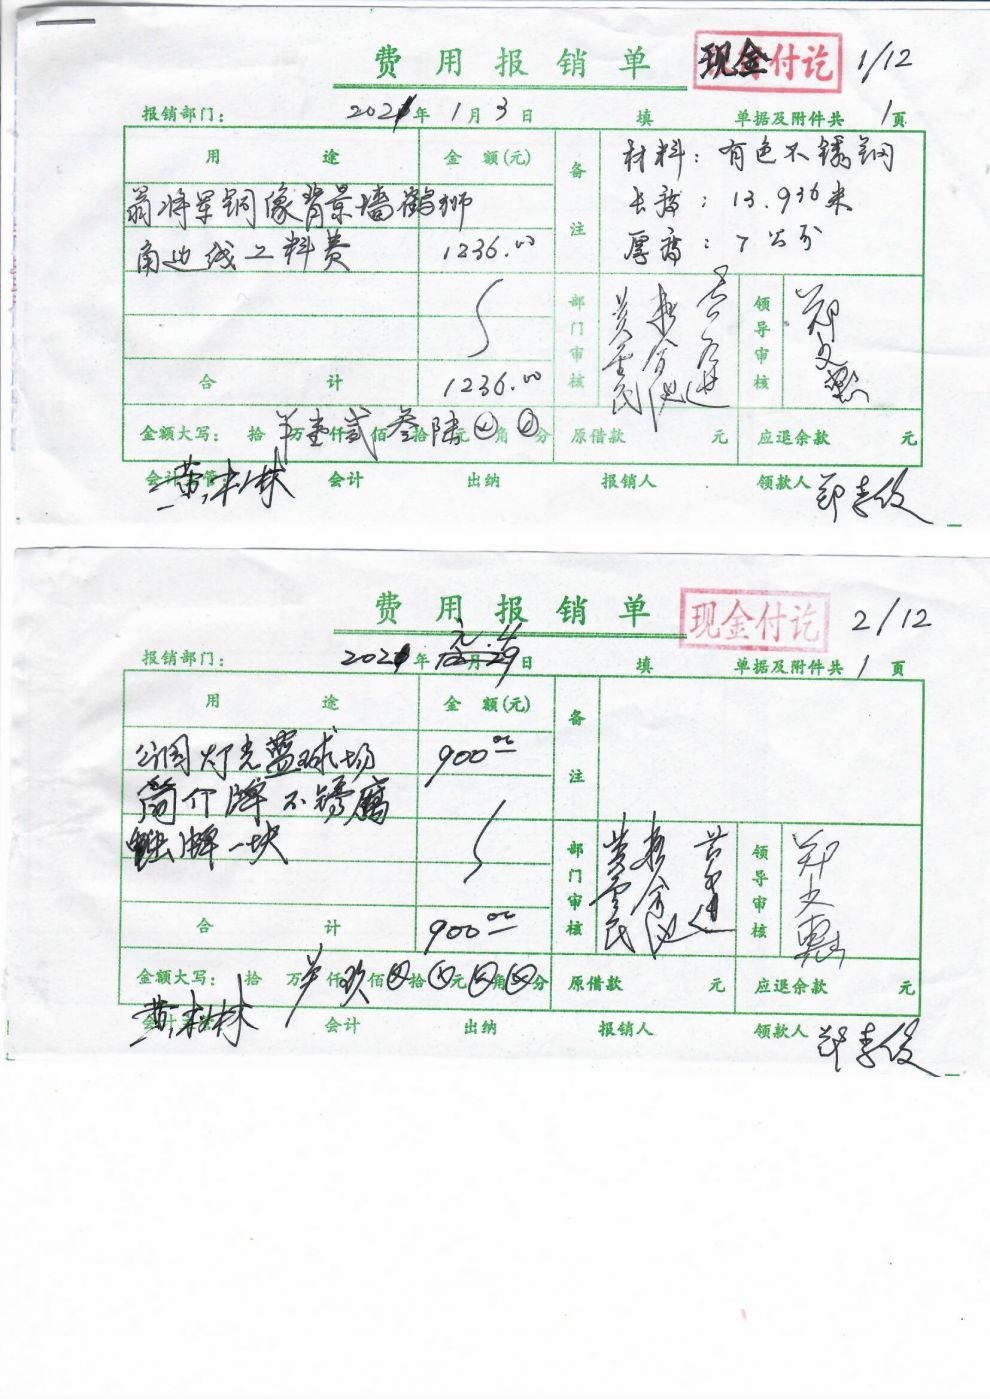 费用报销单 现金付讫 1/12
报销部门： 2021年1月3日 填 单据及附件共1页
用途 金额(元) 备注 材料：有色不锈钢
翁将军铜像背景墙 狮 长 ：13.936米
角边线工料费 1236.00 厚 ：7公分
部门审核 领导审核 郑文
合计 1236.00
金额大写： 拾 万壹仟贰佰叁拾陆元 角 分 原借款 元 应退余款 元
会计主管 黄松林 会计 出纳 报销人 领款人 郑孝俊
费用报销单 现金付讫 2/12
报销部门： 2021年元月4日 填 单据及附件共1页
用途 金额(元) 备注
公园灯光蓝球场 900.00
简介牌不锈腐
蚀牌一块 部门审核 领导审核 郑文
合计 900.00
金额大写： 拾 万 仟玖佰 拾 元 角 分 原借款 元 应退余款 元
黄松林 会计 出纳 报销人 领款人 郑孝俊